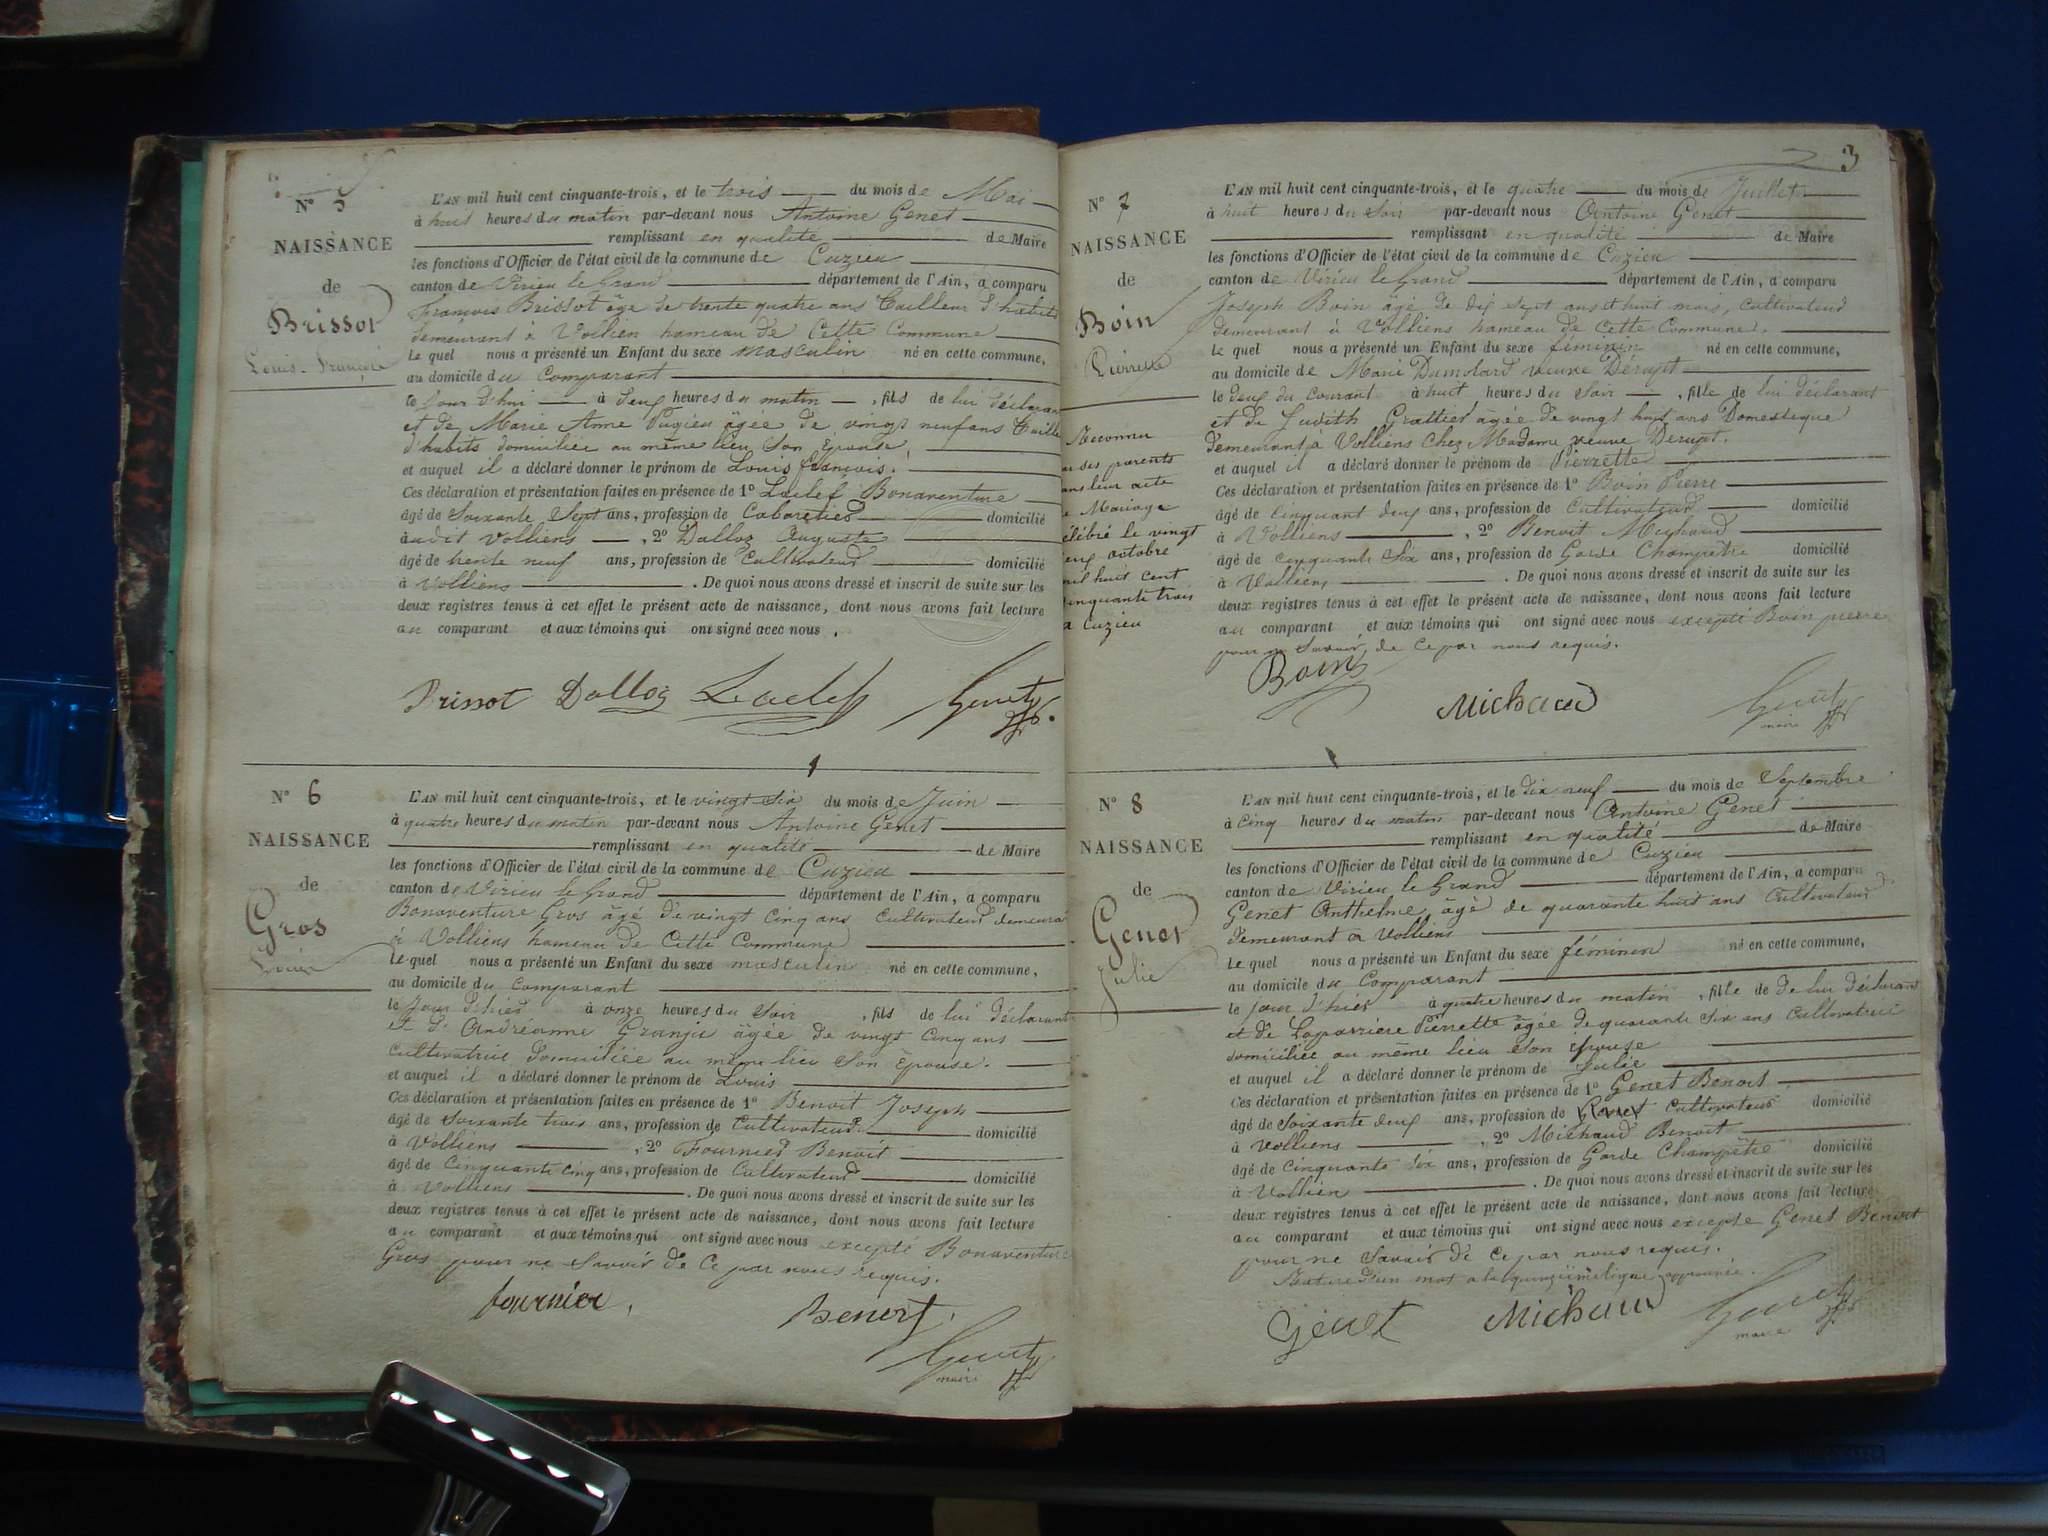 N° 5
NAISSANCE
de
Brissot
Louis-François
L'AN mil huit cent cinquante-trois, et le trois du mois de Mai
à huit heures du matin par-devant nous Antoine Genet
remplissant en qualité de Maire
les fonctions d'Officier de l'état civil de la commune de Cuzieu
canton de Virieu le Grand département de l'Ain, a comparu
François Brissot âgé de trente quatre ans Tailleur d'habits
demeurant à Vollien hameau de Cette Commune
Le quel nous a présenté un Enfant du sexe masculin né en cette commune,
au domicile du Comparant
le Jour d'hui à deux heures du matin , fils de lui déclarant
et de Marie Anne Pugieu âgée de vingt neuf ans Taille
d'habits domiciliée au même lieu Son Epouse
et auquel il a déclaré donner le prénom de Louis françois.
Ces déclaration et présentation faites en présence de 1° Laclef Bonaventure
âgé de Soixante Sept ans, profession de Cabaretier domicilié
à udit Volliens , 2° Dalloz Auguste
âgé de trente neuf ans, profession de Cultivateur domicilié
à Volliens . De quoi nous avons dressé et inscrit de suite sur les
deux registres tenus à cet effet le présent acte de naissance, dont nous avons fait lecture
au comparant et aux témoins qui ont signé avec nous .
Brissot Dalloz Laclef Genet
N° 6
NAISSANCE
de
Gros
Louis
L'AN mil huit cent cinquante-trois, et le vingt Six du mois de Juin
à quatre heures du matin par-devant nous Antoine Genet
remplissant en qualité de Maire
les fonctions d'Officier de l'état civil de la commune de Cuzieu
canton de Virieu le Grand département de l'Ain, a comparu
Bonaventure Gros âgé de vingt Cinq ans Cultivateur demeura
à Volliens hameau de Cette Commune
Le quel nous a présenté un Enfant du sexe masculin né en cette commune,
au domicile du Comparant
le Jour d'hier à onze heures du Soir , fils de lui déclarant
et d' Andréanne Granjie âgée de vingt Cinq ans
Cultivatrice domiciliée au même lieu Son Epouse.
et auquel il a déclaré donner le prénom de Louis
Ces déclaration et présentation faites en présence de 1° Benoit Joseph
âgé de Soixante trois ans, profession de Cultivateur domicilié
à Volliens , 2° Fournier Benoit
âgé de Cinquante Cinq ans, profession de Cultivateur domicilié
à Volliens . De quoi nous avons dressé et inscrit de suite sur les
deux registres tenus à cet effet le présent acte de naissance, dont nous avons fait lecture
au comparant et aux témoins qui ont signé avec nous excepté Bonaventure
Gros pour ne Savoir de Ce par nous requis.
fournier Benoit
Genet
maire
3
N° 7
NAISSANCE
de
Boin
Pierrette
Reconnu
ses parents
ans leur acte
Mariage
élébré le vingt
octobre
mil huit cent
cinquante trois
a Cuzieu
L'AN mil huit cent cinquante-trois, et le quatre du mois de Juillet
à huit heures du Soir par-devant nous Antoine Genet
remplissant en qualité de Maire
les fonctions d'Officier de l'état civil de la commune de Cuzieu
canton de Virieu le Grand département de l'Ain, a comparu
Joseph Boin âgé de dix sept ans et huit mois, Cultivateur
demeurant à Volliens hameau de Cette Commune.
Le quel nous a présenté un Enfant du sexe féminin né en cette commune,
au domicile de Marie Dumolard veuve Derupt
le deux du Courant à huit heures du Soir , fille de lui déclarant
et de Judith Grattier âgée de vingt huit ans Domestique
demeurant à Volliens chez Madame veuve Derupt.
et auquel il a déclaré donner le prénom de Pierrette
Ces déclaration et présentation faites en présence de 1° Boin Pierre
âgé de Cinquant deux ans, profession de Cultivateur domicilié
à Volliens , 2° Benoit Michaud
âgé de cinquante Six ans, profession de Garde Champêtre domicilié
à Volliens . De quoi nous avons dressé et inscrit de suite sur les
deux registres tenus à cet effet le présent acte de naissance, dont nous avons fait lecture
au comparant et aux témoins qui ont signé avec nous excepté Boin pierre
pour ne Savoir de Ce par nous requis.
Boin
Michaud Genet
maire
N° 8
NAISSANCE
de
Genet
Julie
L'AN mil huit cent cinquante-trois, et le dix neuf du mois de Septembre
à Cinq heures du matin par-devant nous Antoine Genet
remplissant en qualité de Maire
les fonctions d'Officier de l'état civil de la commune de Cuzieu
canton de Virieu le Grand département de l'Ain, a comparu
Genet Anthelme âgé de quarante huit ans Cultivateur
demeurant à Volliens
Le quel nous a présenté un Enfant du sexe féminin né en cette commune,
au domicile du Comparant
le jour d'hier à quatre heures du matin , fille de De lui déclarant
et de Laparriere Pierrette âgée de quarante Six ans Cultivatrice
domiciliée au même lieu Son épouse
et auquel il a déclaré donner le prénom de Julie
Ces déclaration et présentation faites en présence de 1° Genet Benoit
âgé de Soixante deux ans, profession de Cultivateur domicilié
à Volliens , 2° Michaud Benoit
âgé de Cinquante Six ans, profession de Garde Champêtre domicilié
à Vollien . De quoi nous avons dressé et inscrit de suite sur les
deux registres tenus à cet effet le présent acte de naissance, dont nous avons fait lecture
au comparant et aux témoins qui ont signé avec nous excepté Genet Benoit
pour ne Savoir de Ce par nous requis.
Rature d'un mot a la quinzième ligne approuvée.
Genet Michaud Genet
maire